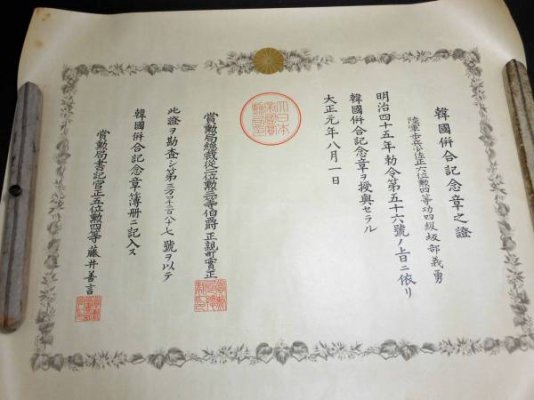 韓國併合記念章之證
陸軍歩兵少佐正六位勲四等功四級坂部義勇
明治四十五年勅令第五十六號ノ旨ニ依リ
韓國併合記念章ヲ授與セラル
大正元年八月一日
大日本帝國賞勲局印
賞勲局總裁從二位勲二等伯爵正親町實正
此證ヲ勘査シ第 號ヲ以テ
韓國併合記念章簿冊ニ記入ス
賞勲局書記官正五位勲四等藤井善言